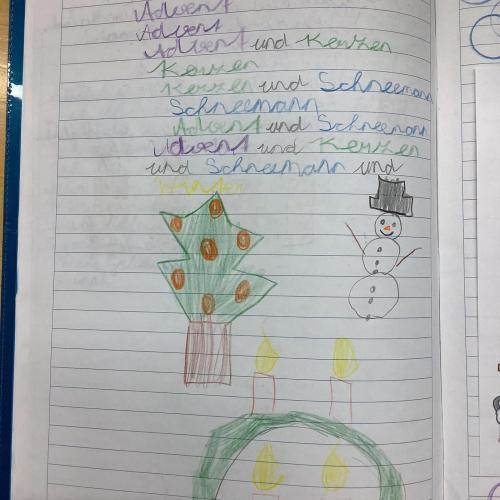 Advent
Advent
Advent und Kerzen
Kerzen
Kerzen und Schneemann
Schneemann
Advent und Schneemann
Advent und Kerzen
und Schneemann und
Winter